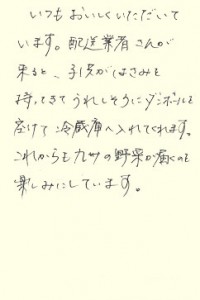 いつもおいしくいただいて
います。配送業者さんが
来ると、子供がはさみを
持ってきてうれしそうにダンボールを
空けて冷蔵庫へ入れてくれます。
これからも九州の野菜が届くのを
楽しみにしています。